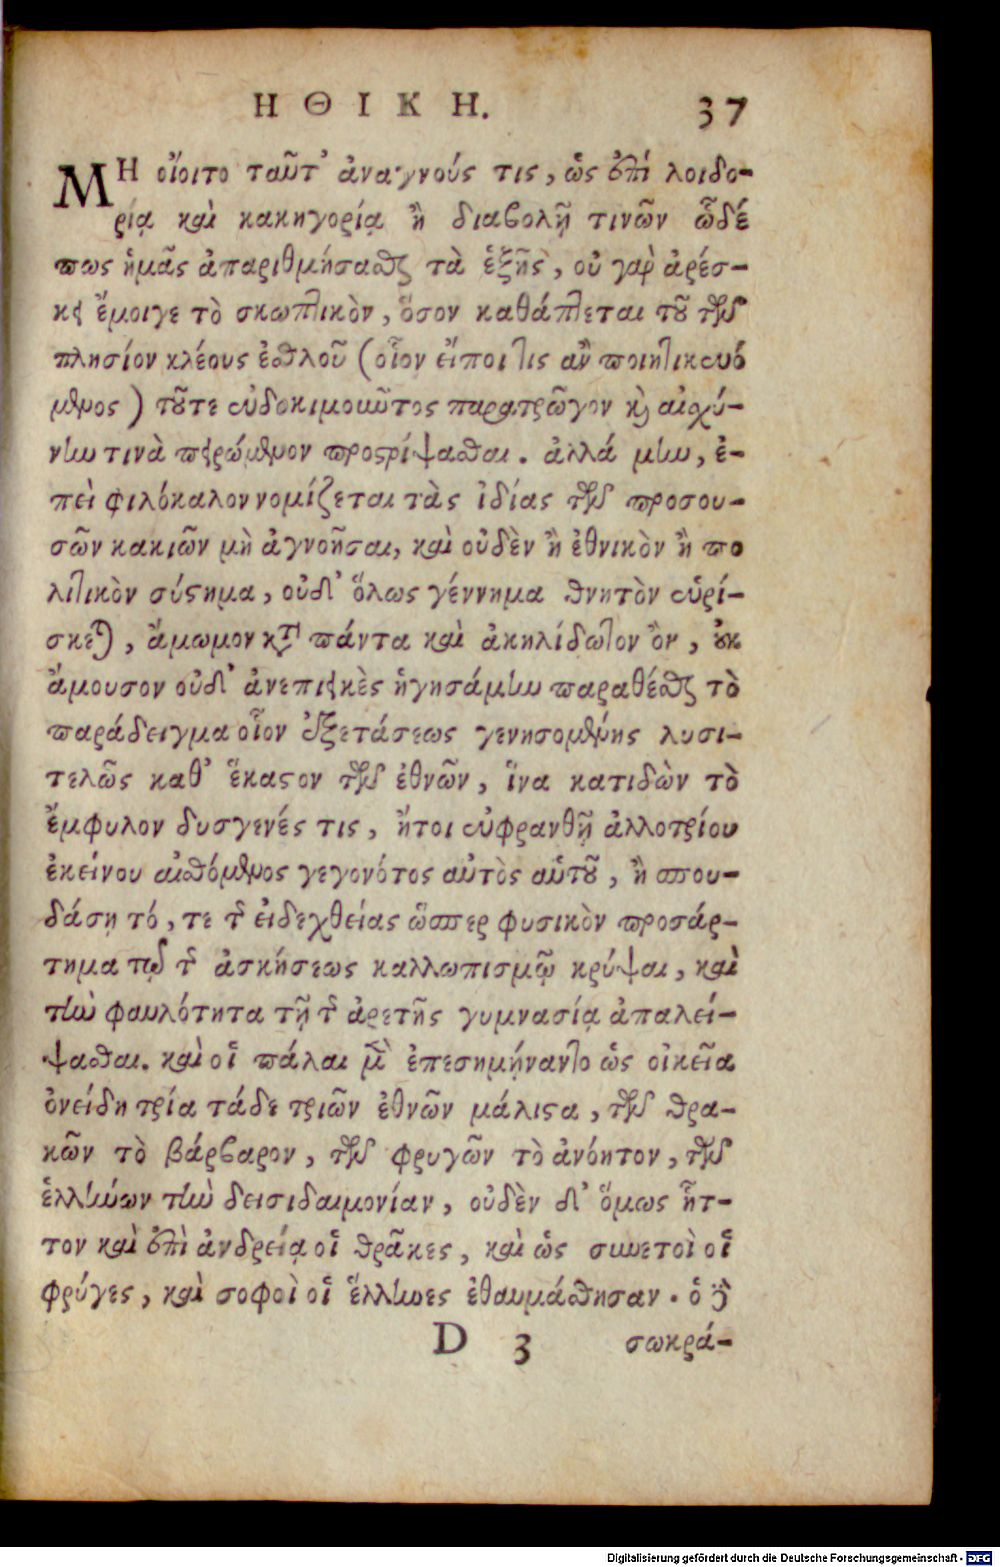 ΗΘΙΚΗ. 37
ΜΗ οἴοιτο ταῦτ' ἀναγνούς τις, ὡς ἐπὶ λοιδο-
ρίᾳ καὶ κακηγορίᾳ ἢ διαβολῇ τινῶν ὧδέ
πως ἡμᾶς ἀπαριθμήσασθαι τὰ ἑξῆς, οὐ γὰρ ἀρέσ-
κει ἔμοιγε τὸ σκωπτικὸν, ὅσον καθάπτεται τοῦ τῶν
πλησίον κλέους ἐσθλοῦ (οἷον εἴποι τις ἂν ποιητικευό
μενος) τοῦτε εὐδοκιμοῦντος παρατρῶγον καὶ αἰσχύ-
νην τινὰ πειρώμενον προςρίψασθαι. ἀλλά μὴν, ἐ-
πεὶ φιλόκαλον νομίζεται τὰς ἰδίας τῶν προσου-
σῶν κακιῶν μὴ ἀγνοῆσαι, καὶ οὐδὲν ἢ ἐθνικὸν ἢ πο
λιτικὸν σύστημα, οὐδ' ὅλως γέννημα θνητὸν εὑρί-
σκεται, ἄμωμον κατὰ πάντα καὶ ἀκηλίδωτον ὂν, οὐκ
ἄμουσον οὐδ' ἀνεπιεικὲς ἡγησάμην παραθέσθαι τὸ
παράδειγμα οἷον ἐξετάσεως γενησομένης λυσι-
τελῶς καθ' ἕκαστον τῶν ἐθνῶν, ἵνα κατιδὼν τὸ
ἔμφυλον δυσγενές τις, ἤτοι εὐφρανθῇ ἀλλοτρίου
ἐκείνου αἰσθόμενος γεγονότος αὐτὸς αὑτοῦ, ἢ σπου-
δάσῃ τό, τε τῆς εἰδεχθείας ὥσπερ φυσικὸν προσάρ-
τημα τῷ τῆς ἀσκήσεως καλλωπισμῷ κρύψαι, καὶ
τὴν φαυλότητα τῇ τῆς ἀρετῆς γυμνασίᾳ ἀπαλεί-
ψασθαι. καὶ οἱ πάλαι μὲν ἐπεσημήναντο ὡς οἰκεῖα
ὀνείδη τρία τάδε τριῶν ἐθνῶν μάλιστα, τῶν θρα-
κῶν τὸ βάρβαρον, τῶν φρυγῶν τὸ ἀνόητον, τῶν
ἑλλήνων τὴν δεισιδαιμονίαν, οὐδὲν δ' ὅμως ἧτ-
τον καὶ ἐπὶ ἀνδρείᾳ οἱ θρᾶκες, καὶ ὡς συνετοὶ οἱ
φρύγες, καὶ σοφοὶ οἱ ἕλληνες ἐθαυμάσθησαν. ὁ δὲ
D 3 σωκρά-
Digitalisierung gefördert durch die Deutsche Forschungsgemeinschaft - DFG